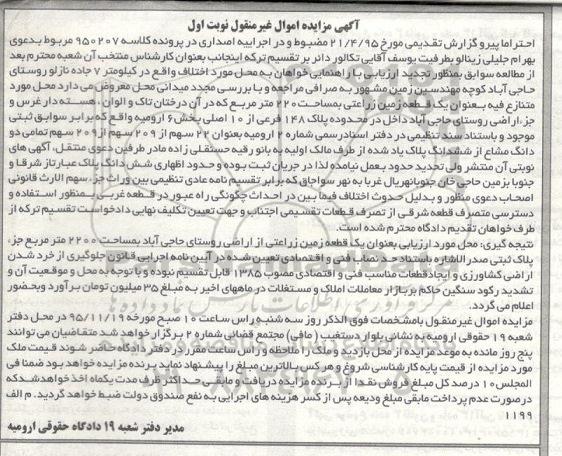 آگهی مزایده اموال غیر منقول نوبت اول
احتراما پیرو گزارش تقدیمی مورخ ۲۱/۴/۹۵ مضبوط و در اجراییه اصداری در پرونده کلاسه ۹۵۰۲۰۷ مربوط بدعوی
بهرام جلیلی زینالو بطرفیت یوسف آقایی تکالور دائر بر تقسیم ترکه اینجانب بعنوان کارشناس منتخب آن شعبه محترم بعد
از مطالعه سوابق بمنظور تجدید ارزیابی با راهنمایی خواهان به محل مورد اختلاف واقع در کیلومتر ۷ جاده نازلو روستای
حاجی آباد کوچه مهندسین زمین مشهور به صرافی مراجعه و با بررسی مجدد میدانی محل معروض می دارد محل مورد
متنازع فیه بعنوان یک قطعه زمین زراعتی بمساحت ۲۲۰۰ متر مربع که در آن درختان تاک و الوان، هسته دار غرس و
جزء اراضی روستای حاجی آباد داخل در محدوده پلاک ۱۴۸ فرعی از ۱۰ اصلی بخش ۶ ارومیه واقع که برابر سوابق ثبتی
موجود و باستناد سند تنظیمی در دفتر اسناد رسمی شماره ۲ ارومیه بعنوان ۲۲ سهم از ۲۰۹ سهم از ۲۰۹ سهم تمامی دو
دانگ مشاع از ششدانگ پلاک یاد شده از طرف مالک اولیه به بانو رقیه حسنقلی زاده مادر طرفین دعوی منتقل، آگهی های
نوبتی آن منتشر ولی تحدید حدود بعمل نیامده لذا در جریان ثبت بوده و حدود اظهاری شش دانگ پلاک عبارتاز شرقا و
جنوبا بزمین حاجی خان جنوبا بهریال غربا به نهر سواجاق که برابر تقسیم نامه عادی تنظیمی بین وراث جزء سهم الارث قانونی
اصحاب دعوی منظور و بدلیل حدوث اختلاف فیما بین در احداث چگونگی راه عبور در قطعه غربی بمنظور استفاده و
دسترسی متصرف قطعه شرقی از تصرف قطعات تقسیمی اجتناب و جهت تعیین تکلیف نهایی دادخواست تقسیم ترکه از
طرف خواهان تقدیم دادگاه محترم شده است.
نتیجه گیری: محل مورد ارزیابی بعنوان یک قطعه زمین زراعتی از اراضی روستای حاجی آباد بمساحت ۲۲۰۰ متر مربع جزء
پلاک ثبتی صدر الاشاره باستناد حد نصاب فنی و اقتصادی تعیین شده در آیین نامه اجرایی قانون جلوگیری از خرد شدن
اراضی کشاورزی و ایجاد قطعات مناسب فنی و اقتصادی مصوب ۱۳۸۵ قابل تقسیم نبوده و با توجه به محل و موقعیت آن و
تشدید رکود سنگین حاکم بر بازار معاملات املاک و مستغلات در ماههای اخیر به مبلغ ۳۵ میلیون تومان برآورد وبحضور
اعلام می گردد.
مزایده اموال غیر منقول بامشخصات فوق الذکر روز سه شنبه راس ساعت ۱۰ صبح مورخه ۹۵/۱۱/۱۹ در محل دفتر
شعبه ۱۹ حقوقی ارومیه به نشانی بلوار دستغیب (مانی) مجتمع قضایی شماره ۲ برگزار خواهد شد متقاضیان می توانند
پنج روز مانده به موعد مزایده از محل بازدید و ملک را ملاحظه و راس ساعت مقرر در دفتر دادگاه حاضر شوند قیمت ملک
مورد مزایده از قیمت پایه کارشناسی شروع و هر کس بالاترین مبلغ را پیشنهاد نماید برنده مزایده خواهد بود ضمنا فی
المجلس ۱۰ درصد کل مبلغ فروش نقدا از برنده مزایده دریافت و مابقی حداکثر ظرف مدت یکماه اخذ خواهد شد که
در صورت عدم پرداخت مابقی مبلغ ودیعه پس از کسر هزینه های اجرایی به نفع صندوق دولت ضبط خواهد گردید. م الف
۱۱۹۹
مدیر دفتر شعبه ۱۹ دادگاه حقوقی ارومیه